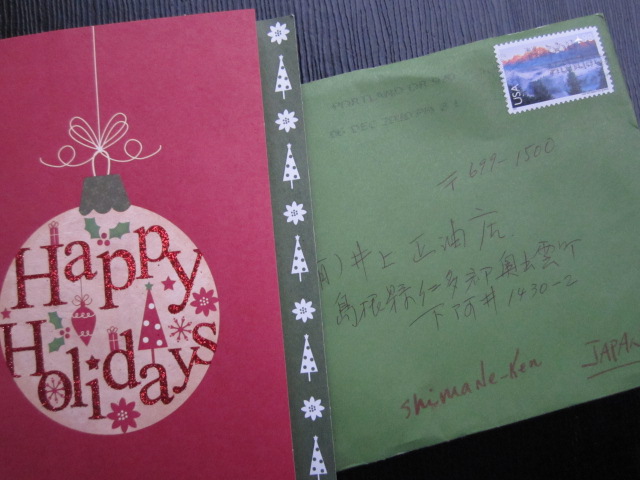 Happy
Holidays
USA
PORTLAND OR
06 DEC 2010 PM
〒699-1500
有)井上正油店
島根県仁多郡奥出雲町
下阿井1430-2
Shimane-Ken
JAPAN